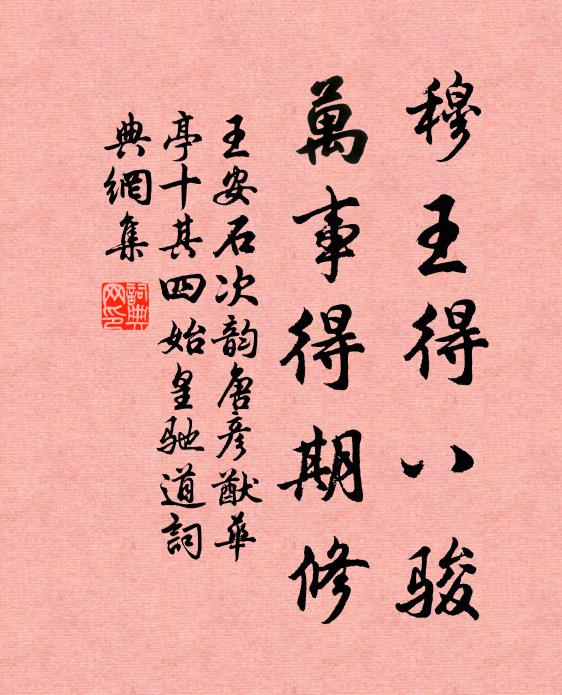 穆王得八骏
萬事得期修
王安石次韵唐彦猷華
亭十其四始皇馳道詞
典網集
詞典
网印